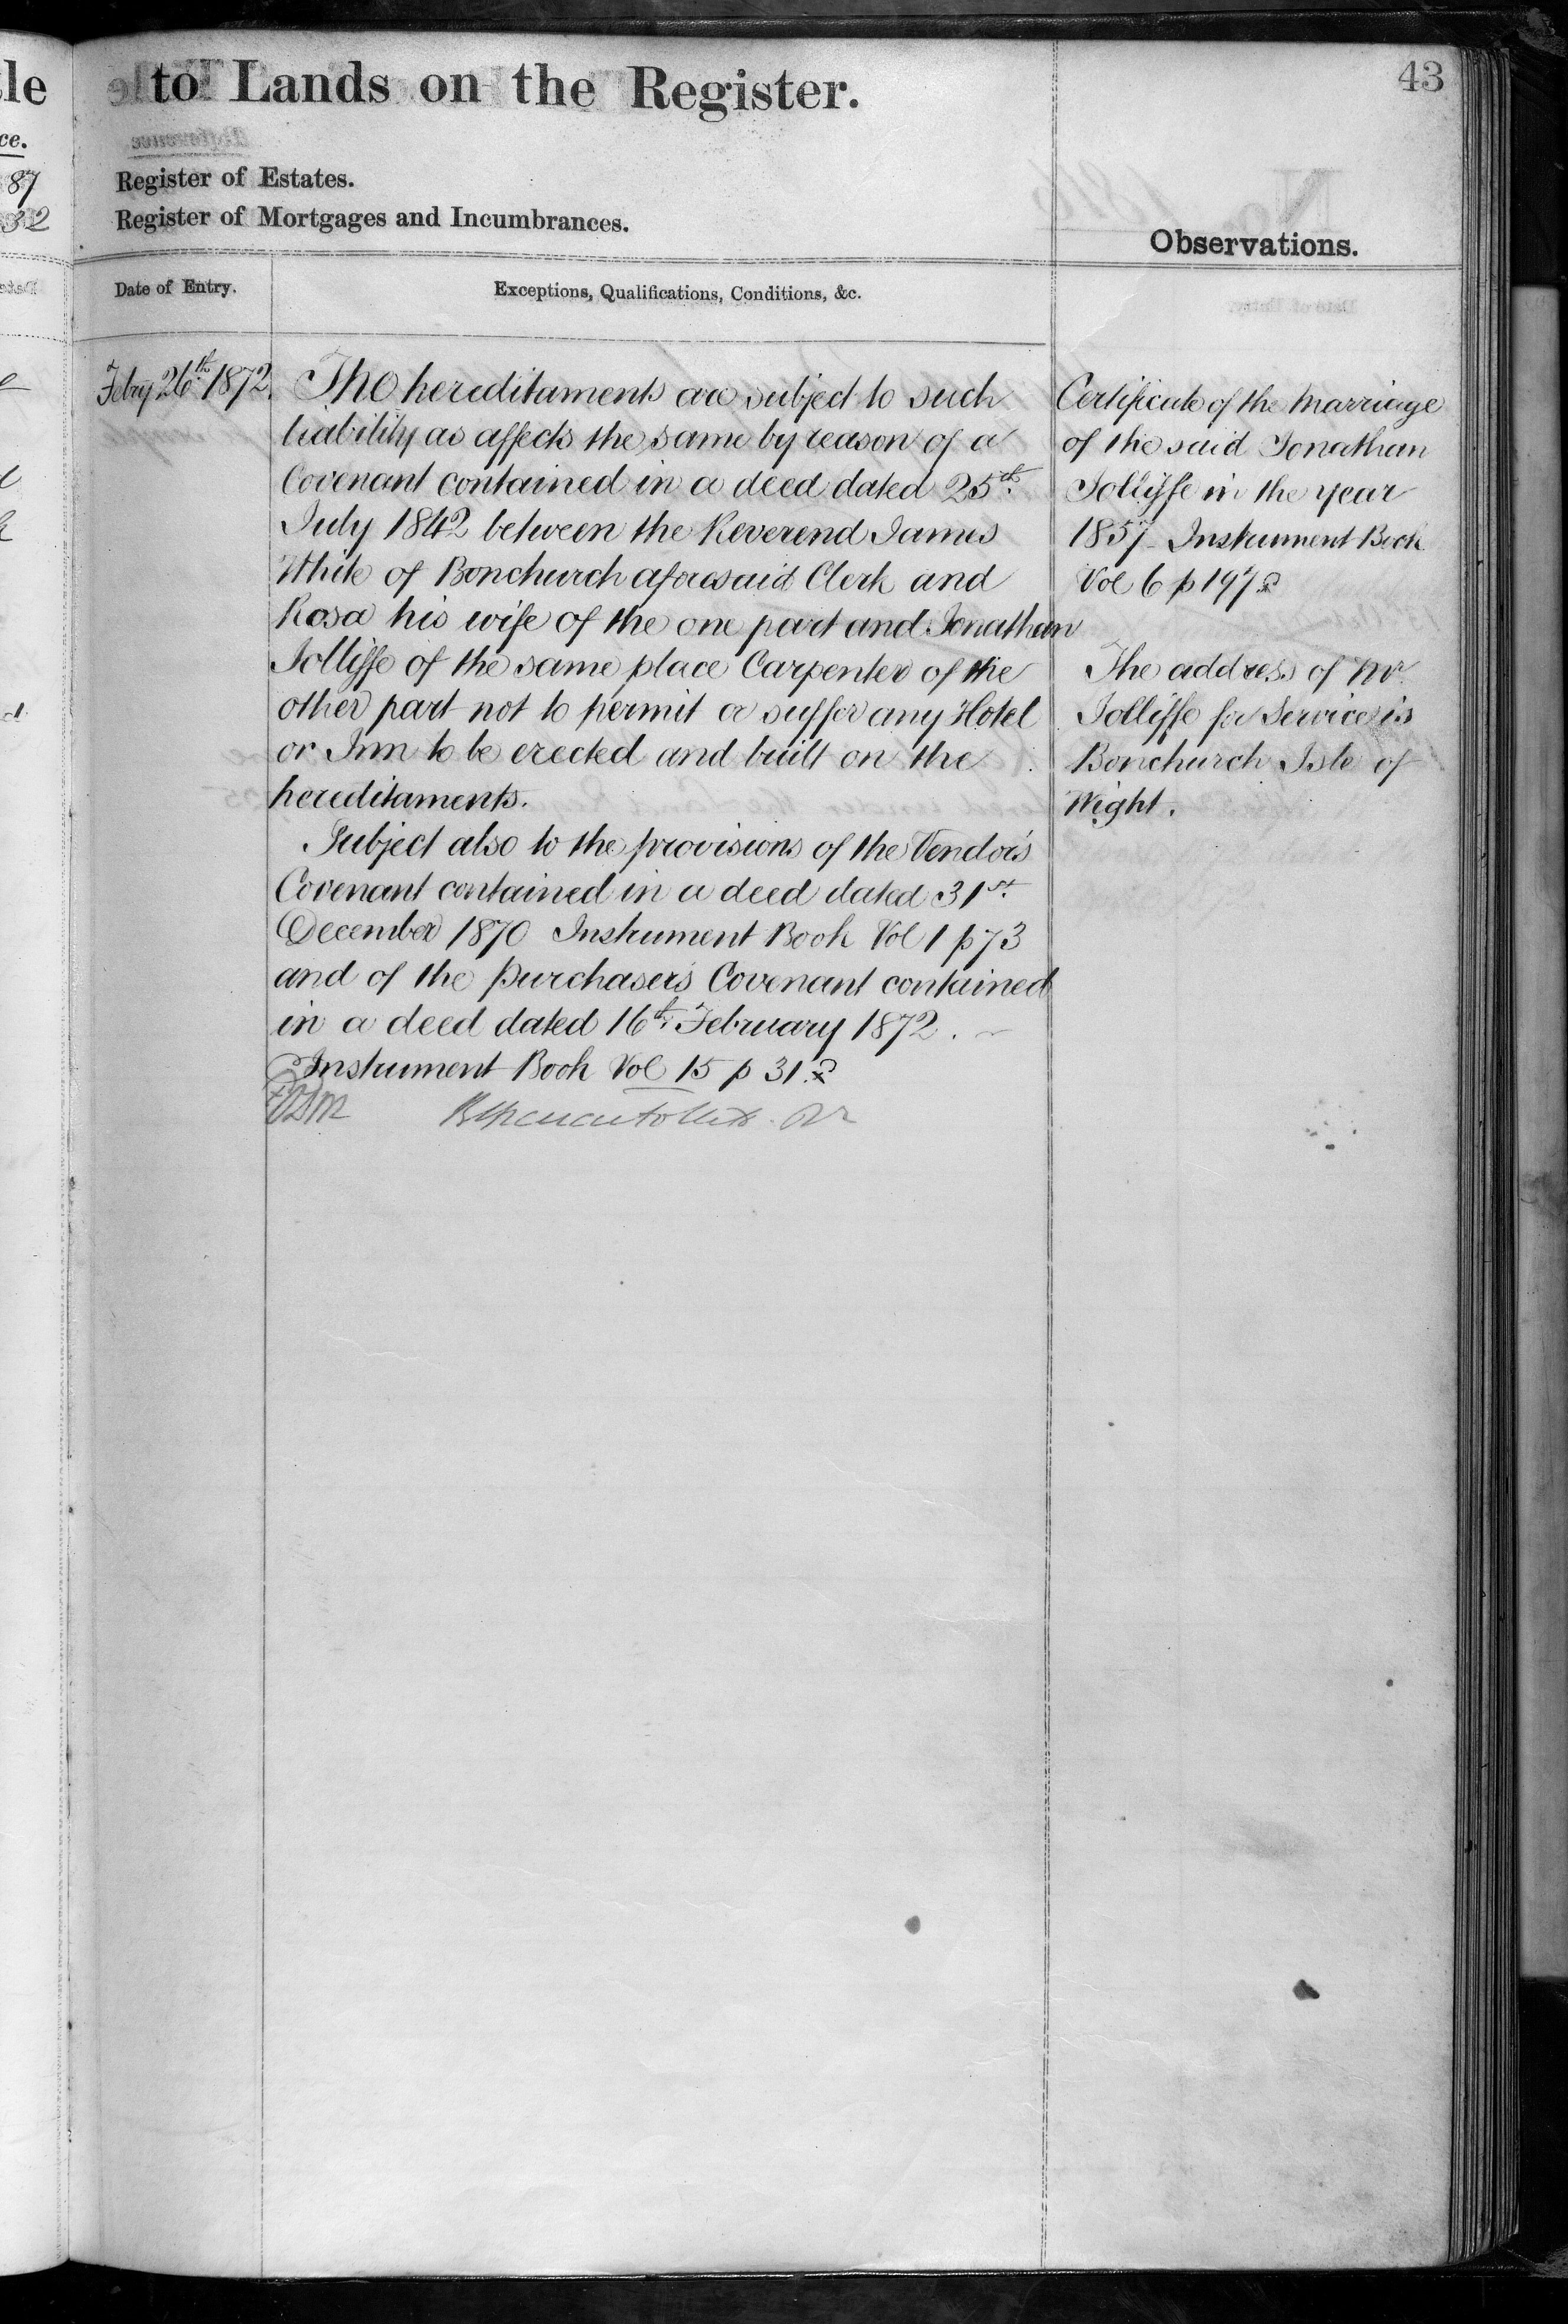 le
ce.
87
32
to Lands on the Register.
43
Register of Estates.
Register of Mortgages and Incumbrances.
Observations.
Date of Entry.
Exceptions, Qualifications, Conditions, &c.
Febry 26th 1872.
The hereditaments are subject to such
liability as affects the same by reason of a
Covenant contained in a deed dated 25th
July 1842 between the Reverend James
White of Bonchurch aforesaid Clerk and
Rosa his wife of the one part and Jonathan
Jolliffe of the same place Carpenter of the
other part not to permit or suffer any Hotel
or Inn to be erected and built on the
hereditaments.
Subject also to the provisions of the Vendor's
Covenant contained in a deed dated 31st
December 1870 Instrument Book Vol 1 p 73
and of the purchaser's Covenant contained
in a deed dated 16th February 1872.
Instrument Book Vol 15 p 31
Certificate of the Marriage
of the said Jonathan
Jolliffe in the year
1857 Instrument Book
Vol 6 p 197
The address of Mr
Jolliffe for Service is
Bonchurch Isle of
Wight.